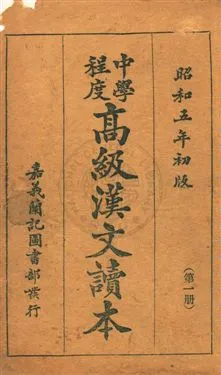 昭和五年初版
(第一册)
中學程度
高級漢文讀本
嘉義蘭記圖書部發行